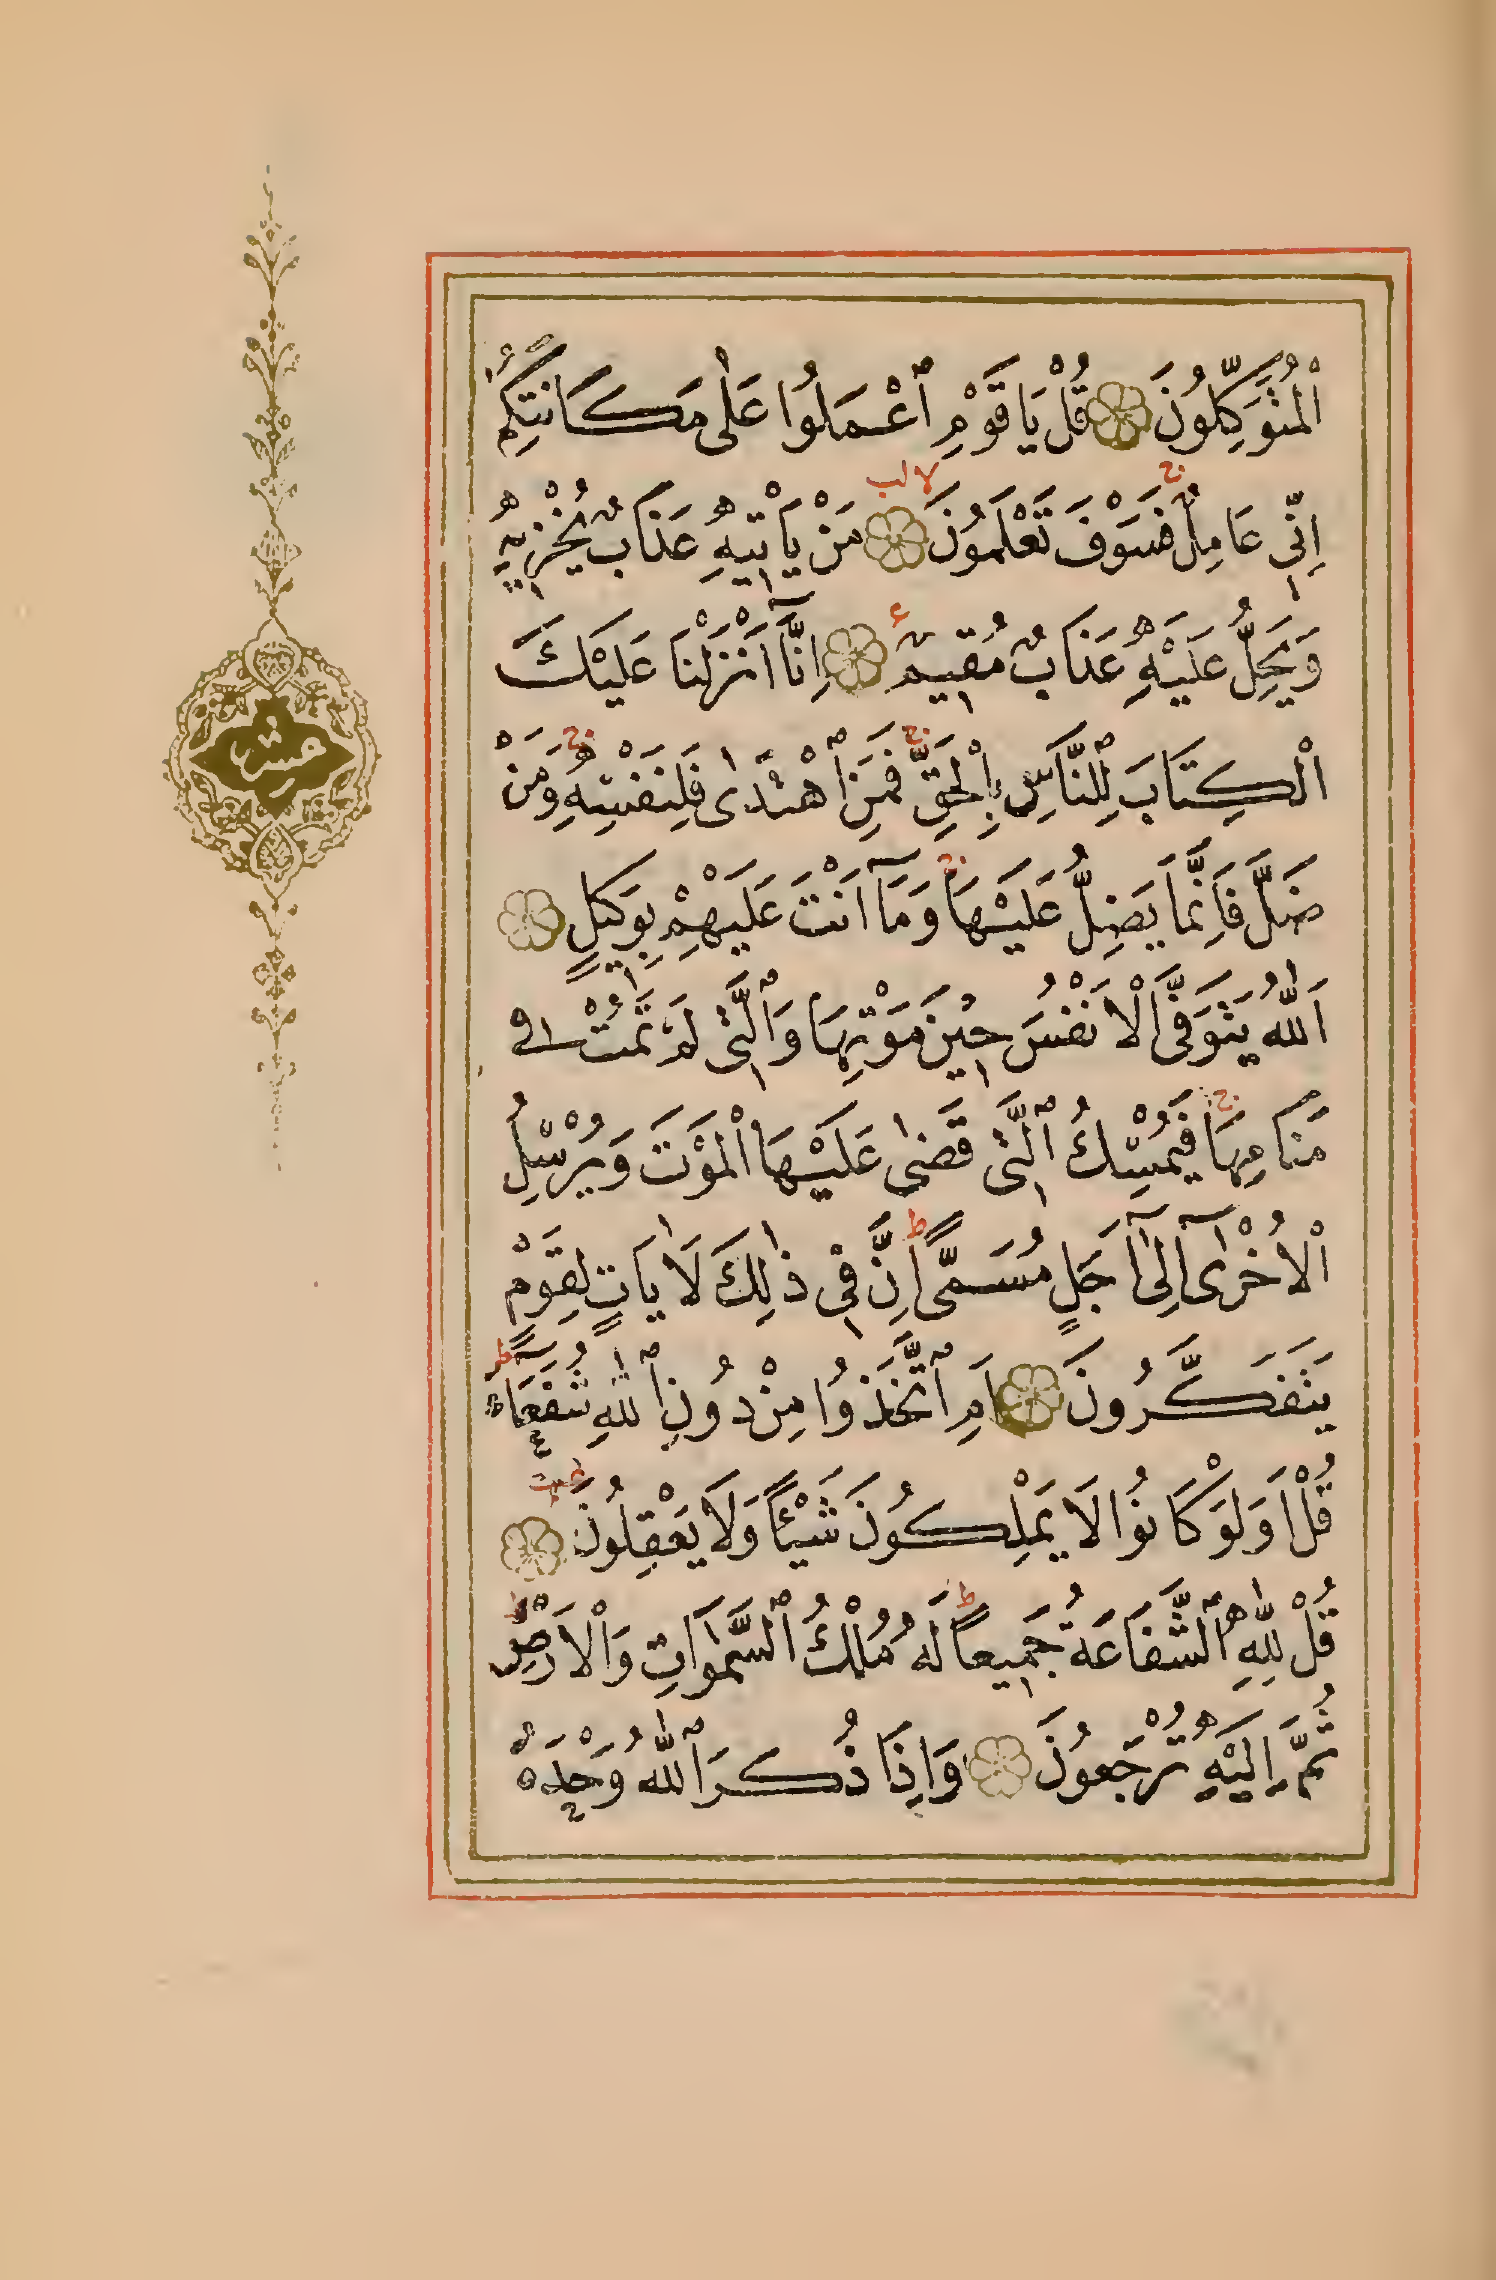 الْمُتَوَكِّلُونَ قُلْ يَا قَوْمِ ٱعْمَلُوا عَلٰى مَكَانَتِكُمْ
اِنّ۪ي عَامِلٌ فَسَوْفَ تَعْلَمُونَ مَنْ يَأْت۪يهِ عَذَابٌ يُخْز۪يهِ
وَيَحِلُّ عَلَيْهِ عَذَابٌ مُق۪يمٌ اِنَّٓا اَنْزَلْنَا عَلَيْكَ
الْكِتَابَ لِلنَّاسِ بِالْحَقِّ فَمَنِ ٱهْتَدٰى فَلِنَفْسِهِ وَمَنْ
ضَلَّ فَاِنَّمَا يَضِلُّ عَلَيْهَا وَمَٓا اَنْتَ عَلَيْهِمْ بِوَك۪يلٍ
اَللّٰهُ يَتَوَفَّى الْاَنْفُسَ ح۪ينَ مَوْتِهَا وَٱلَّت۪ي لَمْ تَمُتْ ف۪ي
مَنَامِهَا فَيُمْسِكُ ٱلَّت۪ي قَضٰى عَلَيْهَا الْمَوْتَ وَيُرْسِلُ
الْاُخْرٰٓى اِلٰٓى اَجَلٍ مُسَمًّى اِنَّ ف۪ي ذٰلِكَ لَاٰيَاتٍ لِقَوْمٍ
يَتَفَكَّرُونَ اَمِ ٱتَّخَذُوا مِنْ دُونِ ٱللّٰهِ شُفَعَٓاءَ
قُلْ اَوَلَوْ كَانُوا لَا يَمْلِكُونَ شَيْـًٔا وَلَا يَعْقِلُونَ
قُلْ لِلّٰهِ ٱلشَّفَاعَةُ جَم۪يعًا لَهُ مُلْكُ ٱلسَّمٰوَاتِ وَالْاَرْضِ
ثُمَّ اِلَيْهِ تُرْجَعُونَ وَاِذَا ذُكِرَ ٱللّٰهُ وَحْدَهُ
عشر